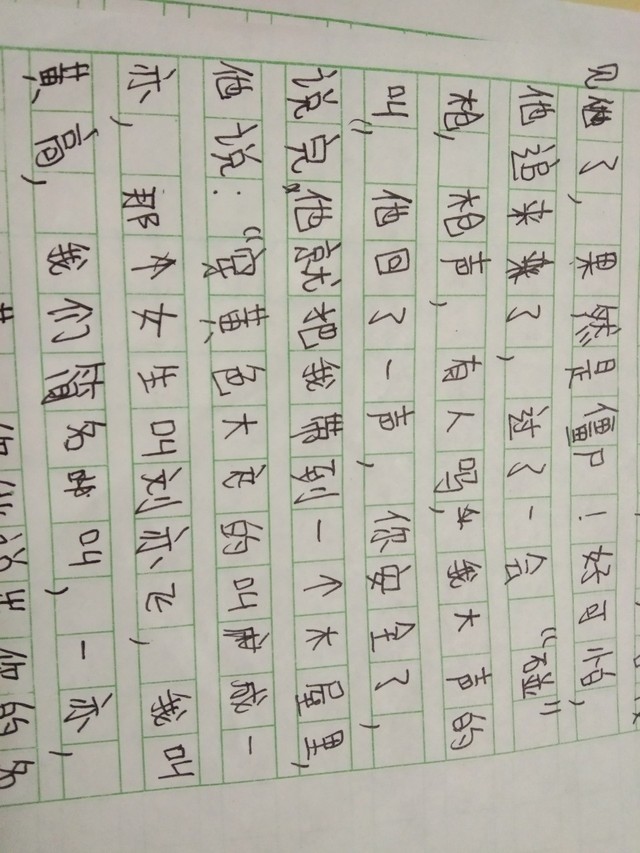 见他了，果然是僵尸！好可怕，
他追来了，过了一会“碰”
枪，枪声，有人吗，我大声的
叫，”他回了一声，你安全了，
说完，他就把我带到一个木屋里，
他说：“穿黄色大衣的叫戚一
亦，那个女生叫刘亦飞，我叫
黄高，我们随名叫，一亦，
你的名